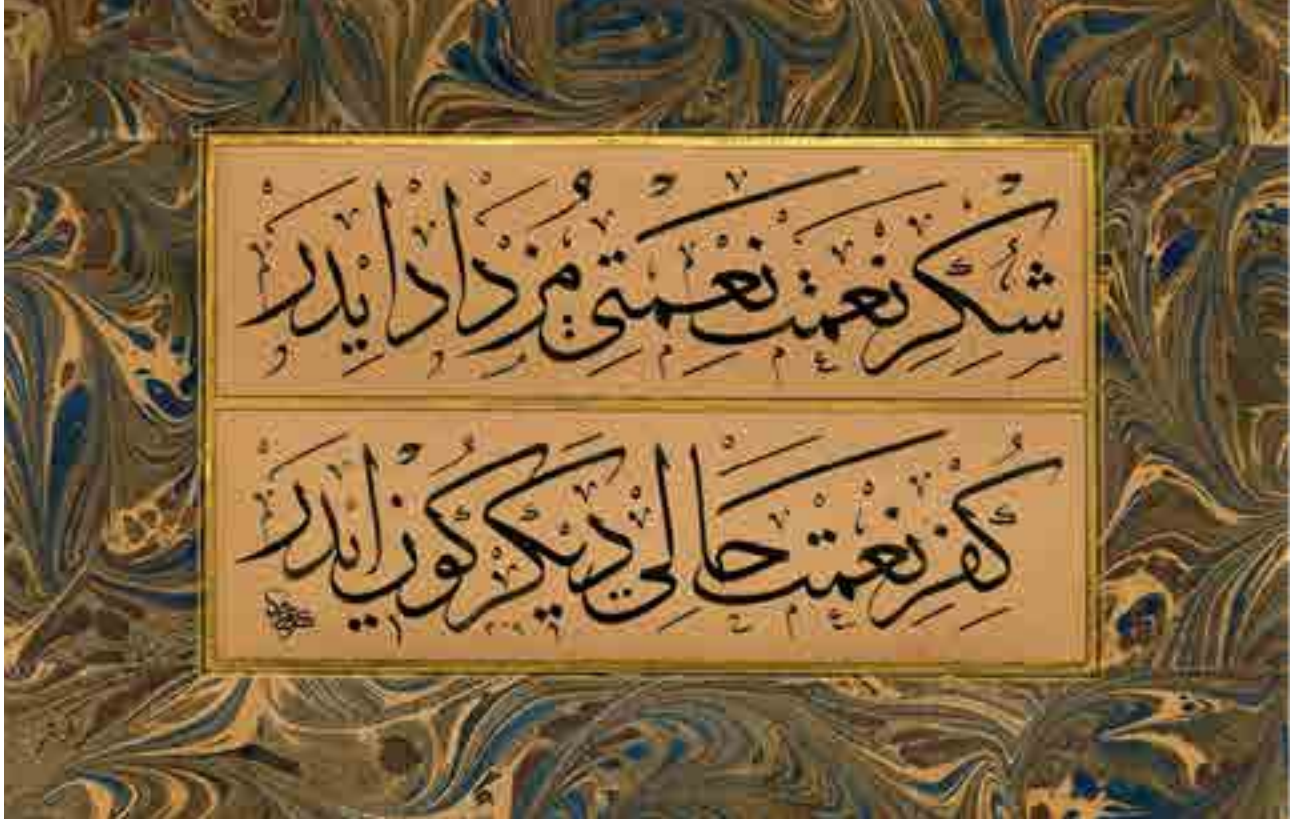 شكر نعمت نعمتي مزداد ايدر
كفر نعمت حالي ديكر كون ايدر